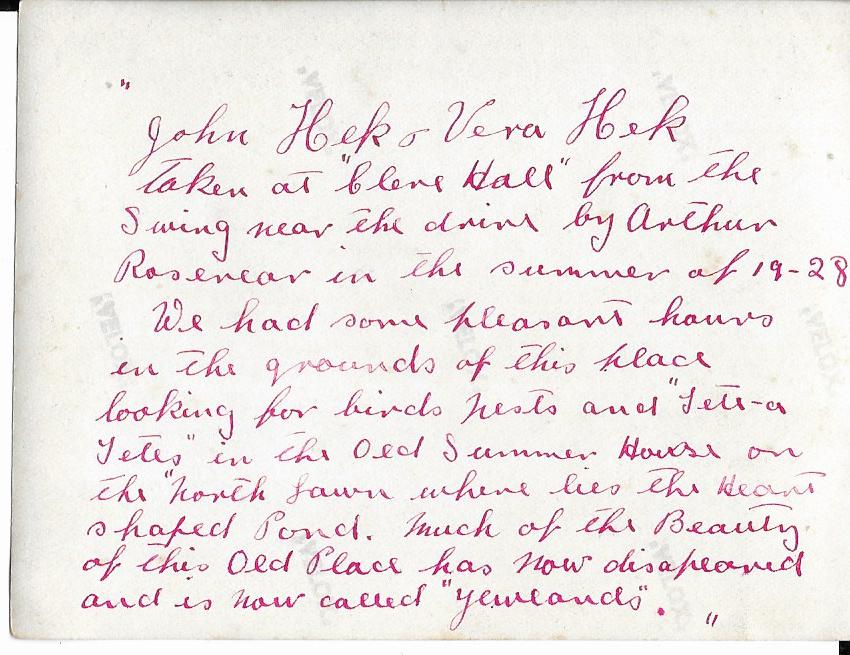 "
John Hek & Vera Hek
taken at "Clere Hall" from the
Swing near the drive by Arthur
Rosevear in the summer of 19-28
We had some pleasant hours
in the grounds of this place
looking for birds nests and "Tete-a
Tetes" in the Old Summer House on
the "North Lawn where lies the Heart
shaped Pond. Much of the Beauty
of this Old Place has now disapeared
and is now called "Yewlands".
"